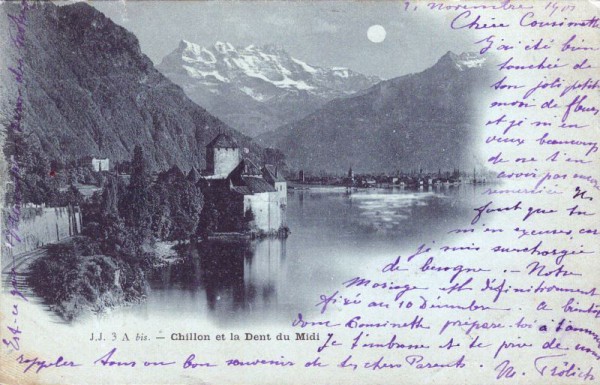 Novembre 1901
Chère Cousinette
J'ai été bien
touchée de
ton joli petit
mot de fleurs
et je m'en
veux beaucoup
de ne t'en
avoir pas encore
remerciée. Il
faut que tu
m'en excuses, car
je suis surchargée
de besogne. - Notre
Mariage est définitivement
fixé au 10 Décembre. A bientôt
donc Cousinette prépare-toi à t'amuser
Je t'embrasse et te prie de nous
rappeler tous au bon souvenir de tes chers Parents.
J.J. 3 A bis. — Chillon et la Dent du Midi